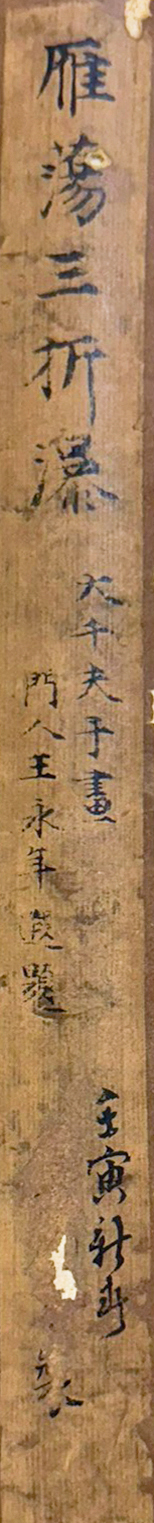 雁蕩三折瀑
大千夫子畫
門人王永年敬題
壬寅新春